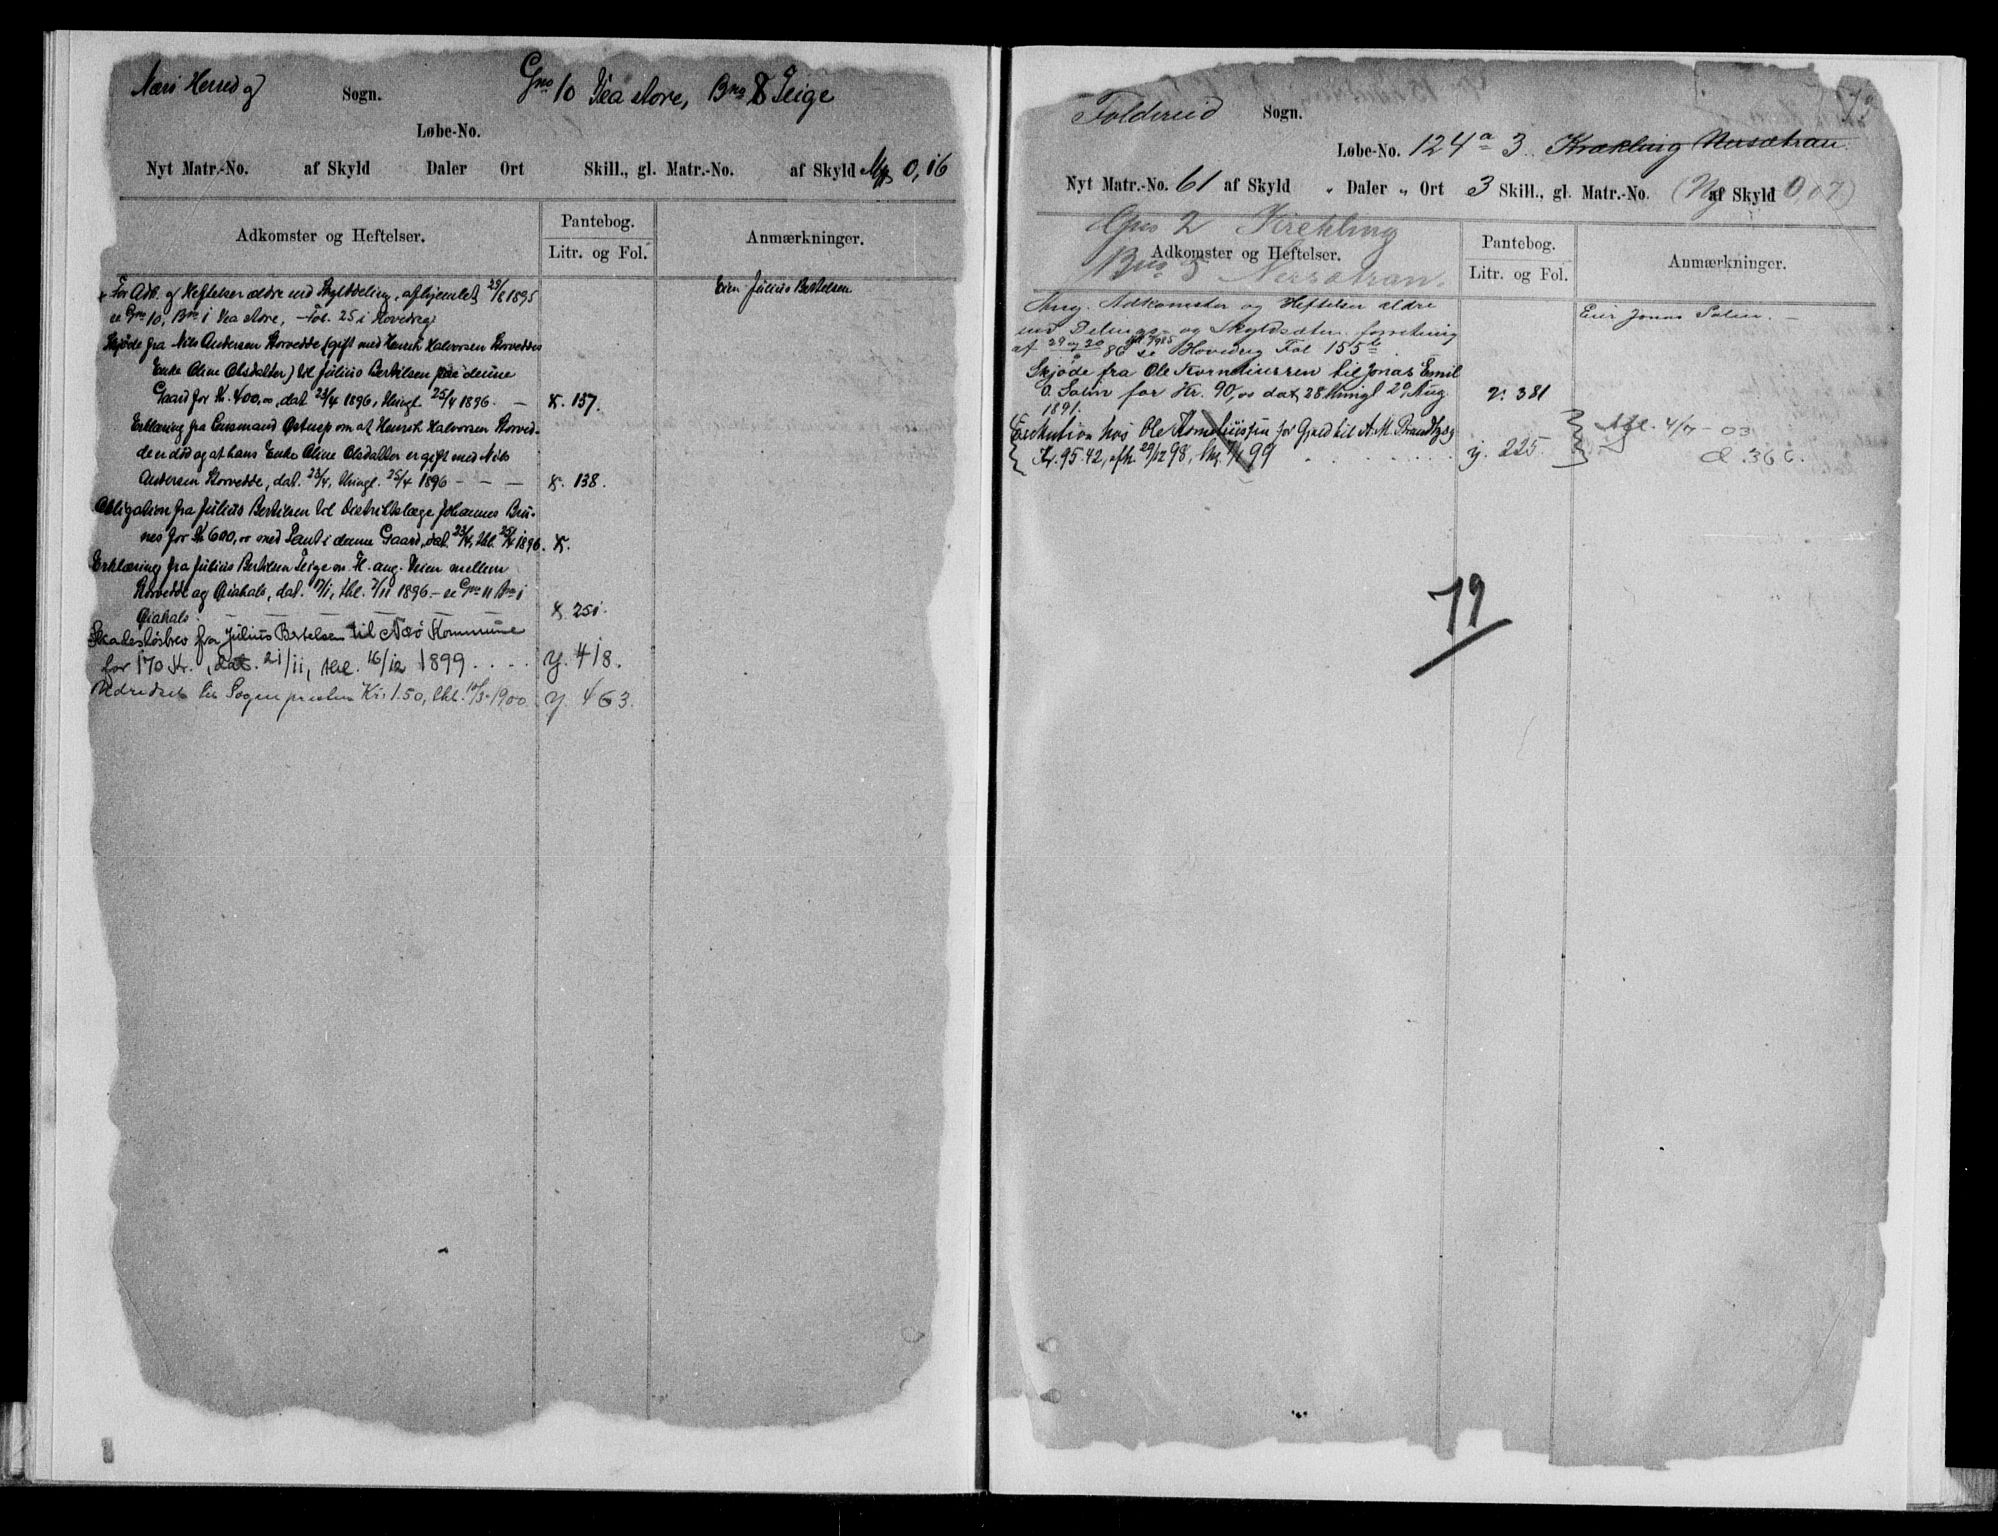 Nærø Herred og Sogn. Gno 10 Vea store, Bno 8 Teige
Løbe-No.
Nyt Matr.-No. af Skyld Daler Ort Skill., gl. Matr.-No. af Skyld 0,16
Adkomster og Heftelser. Pantebog. Anmærkninger.
Litr. og Fol.
For Adk. og Heftelser ældre end Skylddeling, afhjemlet 23/8 1895
se Gno 10, Bno 1 Vea store, Fol. 25 i Hovedreg
Eier Julius Bertelsen
Skjøde fra Nils Andersen Horvedde (gift med Henrik Halvorsen Horveddes
Enke Oline Olsdatter) til Julius Bertelsen paa denne
Gaard for Kr. 400,00, dat 23/4 1896, thingl. 25/4 1896. — X. 137.
Erklæring fra Lensmand om at Henrik Halvorsen Horved-
de er død og at hans Enke Oline Olsdatter er gift med Nils
Andersen Horvedde, dat. 23/4, thingl. 25/4 1896 - - — X. 138.
Obligation fra Julius Bertelsen til Distriktslæge Johannes Bru-
nes for Kr 600,00 med Pant i denne Gaard, dat. 23/4, thl. 25/4 1896. X.
Erklæring fra Julius Bertelsen Teige m. Fl. ang. Veien mellem
Horvedde og dat. 17/1, thl. 7/11 1896 - se Gno 11 Bno 1
X. 251.
Skadesløsbrev fra Julius Bertelsen til Nærø Kommune
for 170 Kr., dat. 21/11, thl. 16/12 1899 . . . . Y. 418.
Udredsel til Sognepresten Kr. 1.50, thl. 1900 Y. 463.
Foldereid Sogn.
Løbe-No. 124 a 3 Krækling Nersætran
Nyt Matr.-No. 61 af Skyld " Daler " Ort 3 Skill., gl. Matr.-No. (Ny af Skyld 0,07)
Gno 2 Krekling
Adkomster og Heftelser. Pantebog. Anmærkninger.
Bno 5 Nersætran.
Litr. og Fol.
Ang. Adkomster og Heftelser ældre
end Delings- og Skyldsætn. forretning
af 29 og 30 86 se Hovedreg Fol 155 b
Eier Jonas Solem. —
Skjøde fra Ole Korneliussen til Jonas Emil
O. Solem for Kr. 90,00 dat 28 thingl 29 Aug
1891. v. 381
Exekution hos Ole Korneliussen for Gjæld til A. M. Brandtzæg
Kr. 95.42, afh. 29/12 98, thg. 99 . . . . . y. 225.
Afl. 4/7 - 03
d. 366.
79